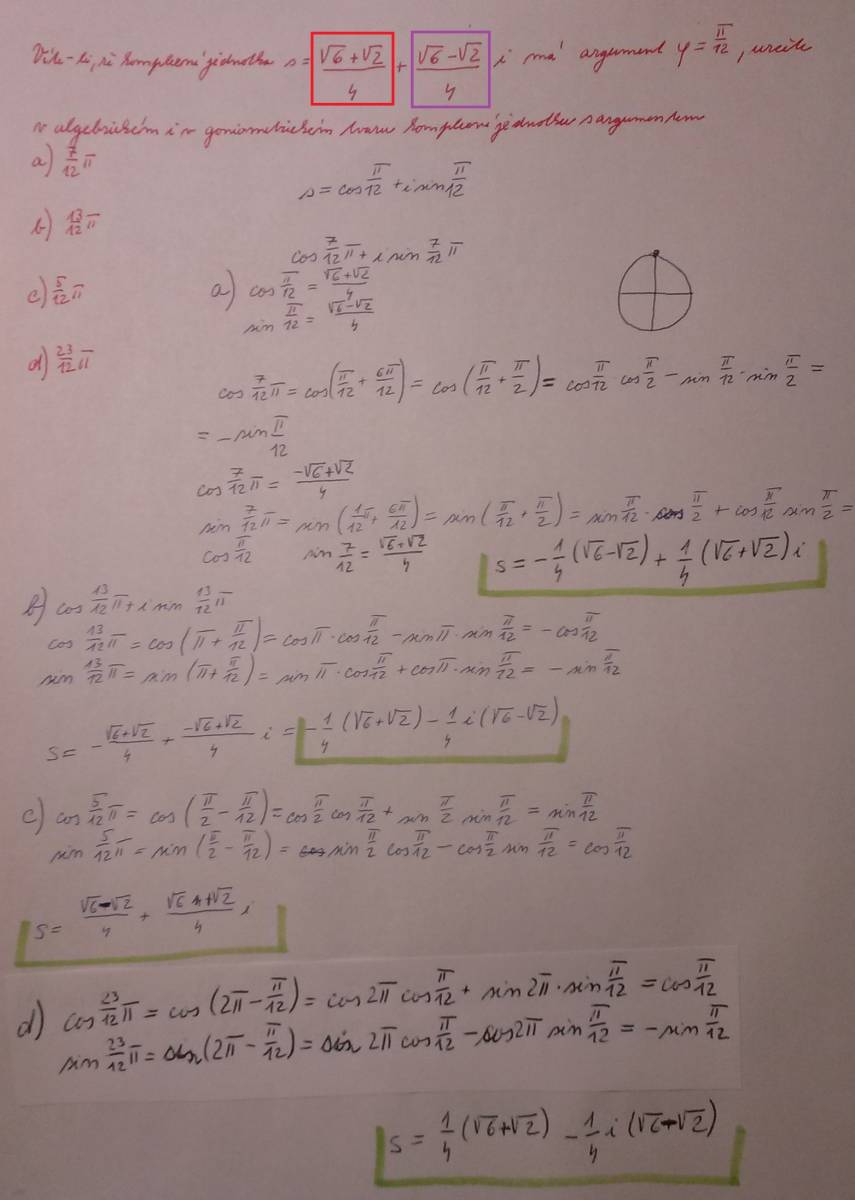 Víte-li, že komplexní jednotka s = (√6+√2)/4 + (√6-√2)/4 i má argument φ = π/12, určete
v algebraickém i v goniometrickém tvaru komplexní jednotku s argumentem
a) 7/12 π
s = cos π/12 + i sin π/12
b) 13/12 π
c) 5/12 π
d) 23/12 π
cos 7/12 π + i sin 7/12 π
a) cos π/12 = (√6+√2)/4
sin π/12 = (√6-√2)/4
cos 7/12 π = cos(π/12 + 6π/12) = cos(π/12 + π/2) = cos π/12 cos π/2 - sin π/12 · sin π/2 =
= - sin π/12
cos 7/12 π = (-√6+√2)/4
sin 7/12 π = sin(1/12 π + 6π/12) = sin(π/12 + π/2) = sin π/12 · cos π/2 + cos π/12 sin π/2 =
cos π/12 sin 7/12 = (√6+√2)/4
s = -1/4 (√6-√2) + 1/4 (√6+√2) i
b) cos 13/12 π + i sin 13/12 π
cos 13/12 π = cos(π + π/12) = cos π · cos π/12 - sin π · sin π/12 = - cos π/12
sin 13/12 π = sin(π + π/12) = sin π · cos π/12 + cos π · sin π/12 = - sin π/12
s = - (√6+√2)/4 + (-√6+√2)/4 i = -1/4 (√6+√2) - 1/4 i (√6-√2)
c) cos 5/12 π = cos(π/2 - π/12) = cos π/2 cos π/12 + sin π/2 sin π/12 = sin π/12
sin 5/12 π = sin(π/2 - π/12) = sin π/2 cos π/12 - cos π/2 sin π/12 = cos π/12
s = (√6-√2)/4 + (√6+√2)/4 i
d) cos 23/12 π = cos(2π - π/12) = cos 2π cos π/12 + sin 2π · sin π/12 = cos π/12
sin 23/12 π = sin(2π - π/12) = sin 2π cos π/12 - cos 2π sin π/12 = - sin π/12
s = 1/4 (√6+√2) - 1/4 i (√6-√2)